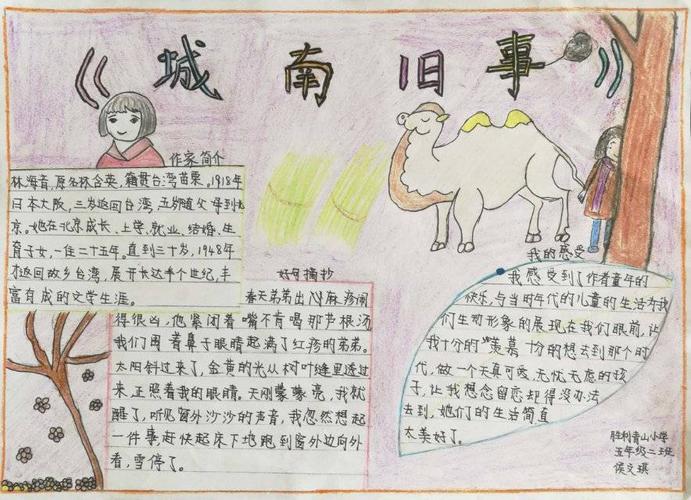 《城南旧事》
作家简介
林海音,原名林含英,籍贯台湾苗栗。1918年
日本大阪,三岁返回台湾,五岁随父母到北
京。她在北京成长、上学、就业、结婚、生
育子女,一住二十五年。直到三十岁,1948年
才返回故乡台湾,展开长达半个世纪,丰
富有成的文学生涯。
好句摘抄
春天弟弟出心麻疹闹
得很凶,他紧闭着嘴不肯喝那芦根汤
我们围着鼻子眼睛起满了红疹的弟弟。
太阳针过来了,金黄的光从树叶缝里透过
来,正照着我的眼睛。天刚蒙蒙亮,我就
醒了,听见窗外沙沙的声音,我忽然想起
一件事赶快起床下地跑到窗外边向外
看,雪停了。
我的感受
我感受到了作者童年的
快乐,与当时年代的儿童的生活为我
们生动形象的展现在我们眼前,让
我十分的羡慕十分的想去到那个时
代,做一个天真可爱,无忧无虑的孩
子,让我想念留恋却得没办法
去到,她们的生活简直
太美好了。
胜利青山小学
五年级二班
侯文琪